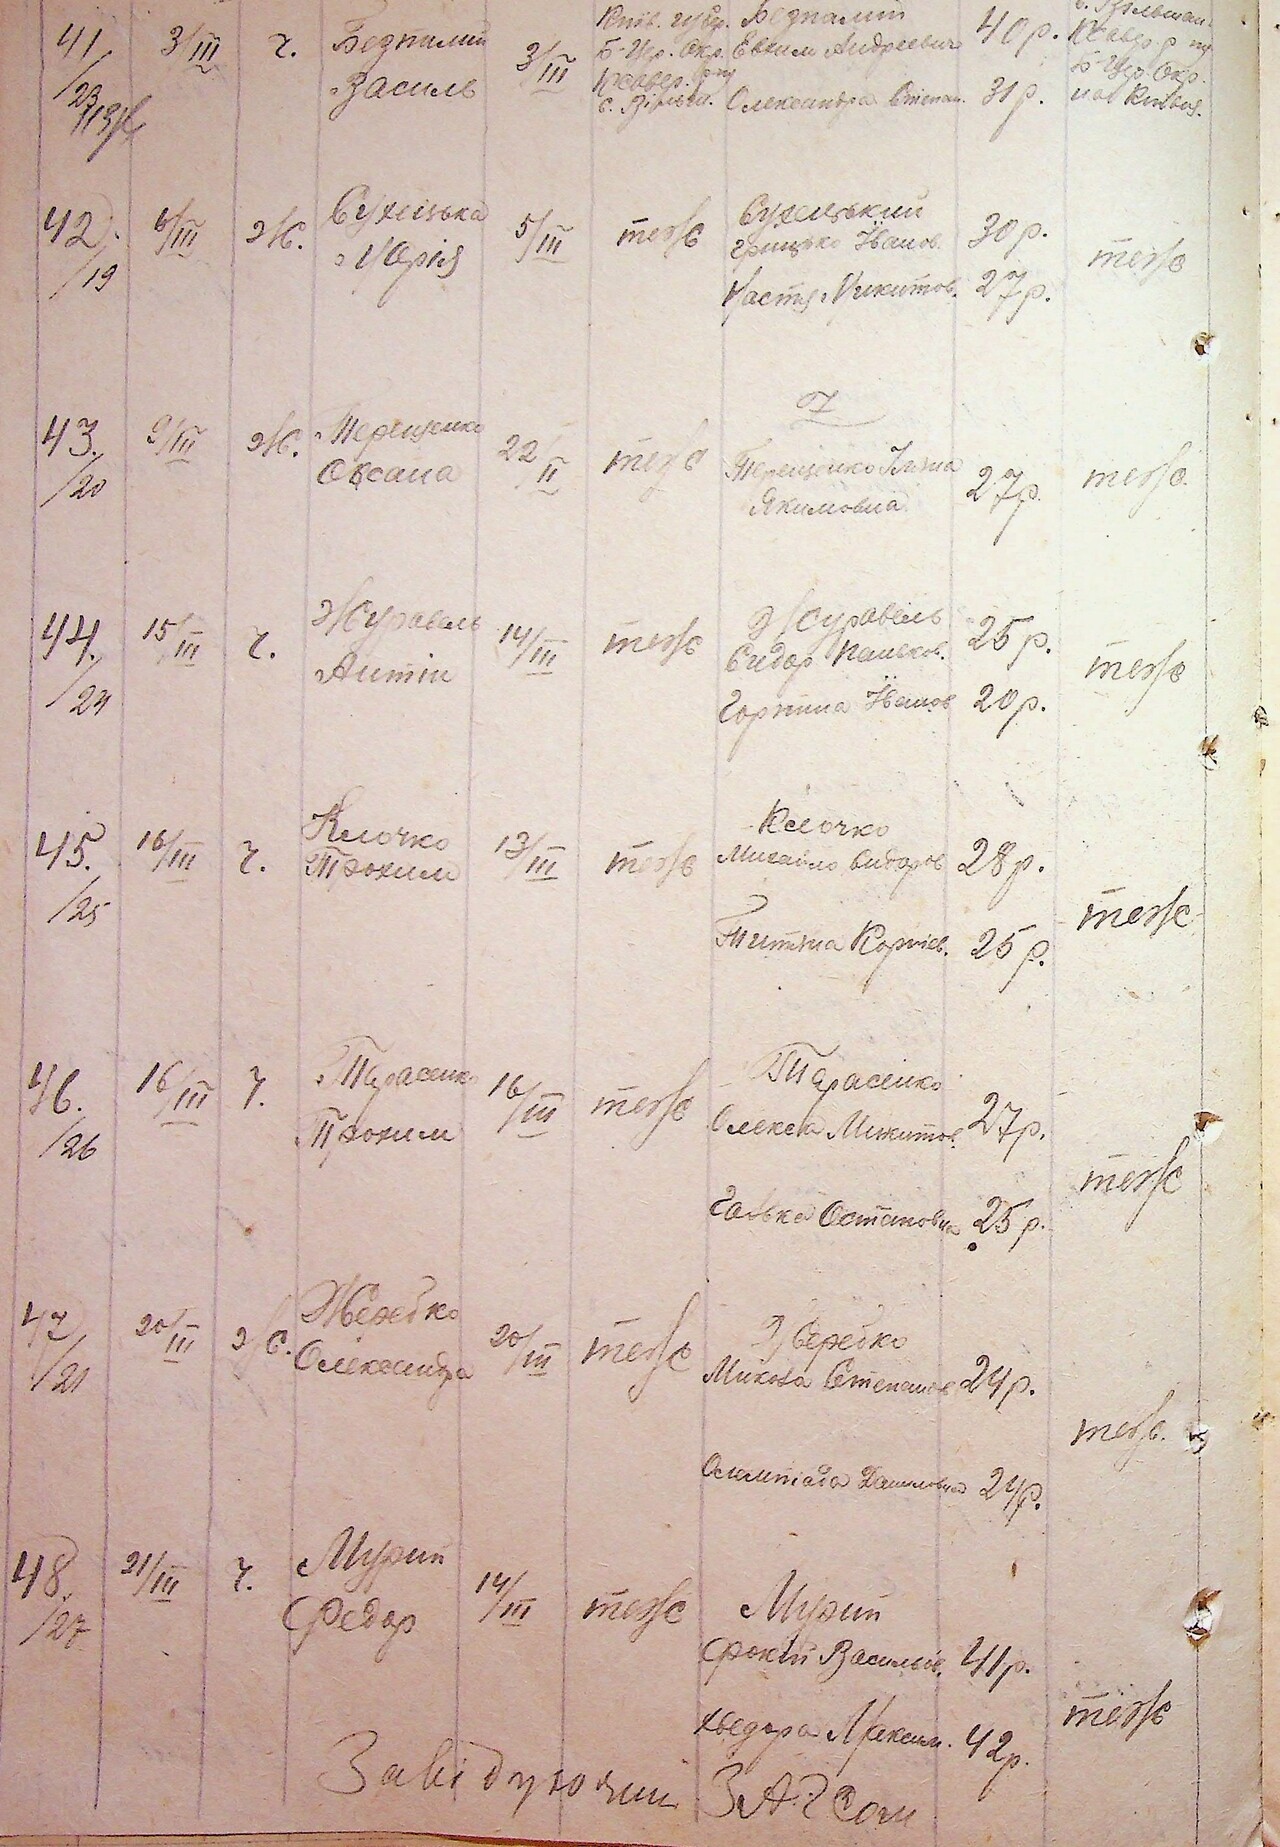 41 3/III ч. Безпалий 3/III Київ. губ. Безпалий 40 р.
/23 Василь Б-Цер. Окр. Евхим Андреевич Ксавер. р
Ксавер. Б-Цер. Окр.
Олександра Степан. 31 р.
42. 6/III Ж. 5/III теж
/19 Марія Грицько Іванов. 30 р. теж
Настя Микитов. 27 р.
43. 9/III Ж. Терещенко 22/II теж
/20 Оксана Терещенко 27 р. теж
Якимовна
44. 15/III ч. Журавель 14/III теж Журавель 25 р.
/24 Антін Сидор теж
Горпина Іванов 20 р.
45. 16/III ч. Клочко 13/III теж Клочко
/25 Трохим Михайло Сидоров 28 р.
теж
Титяна Корнієв. 25 р.
46. 16/III ч. Тарасенко 16/III теж Тарасенко
/26 Трохим Олекса Микитов. 27 р.
теж
Галька Остаповна 25 р.
47 20/III Ж. Жеребко 20/III теж Жеребко
/21 Олександра Микола Степанов 24 р.
теж.
Олимпіада Даниловна 24 р.
48. 21/III ч. Мурий 14/III теж Мурий
/27 Федор Фокій Василів. 41 р.
теж
Хведора Максим. 42 р.
Завідуючий ЗАГСом